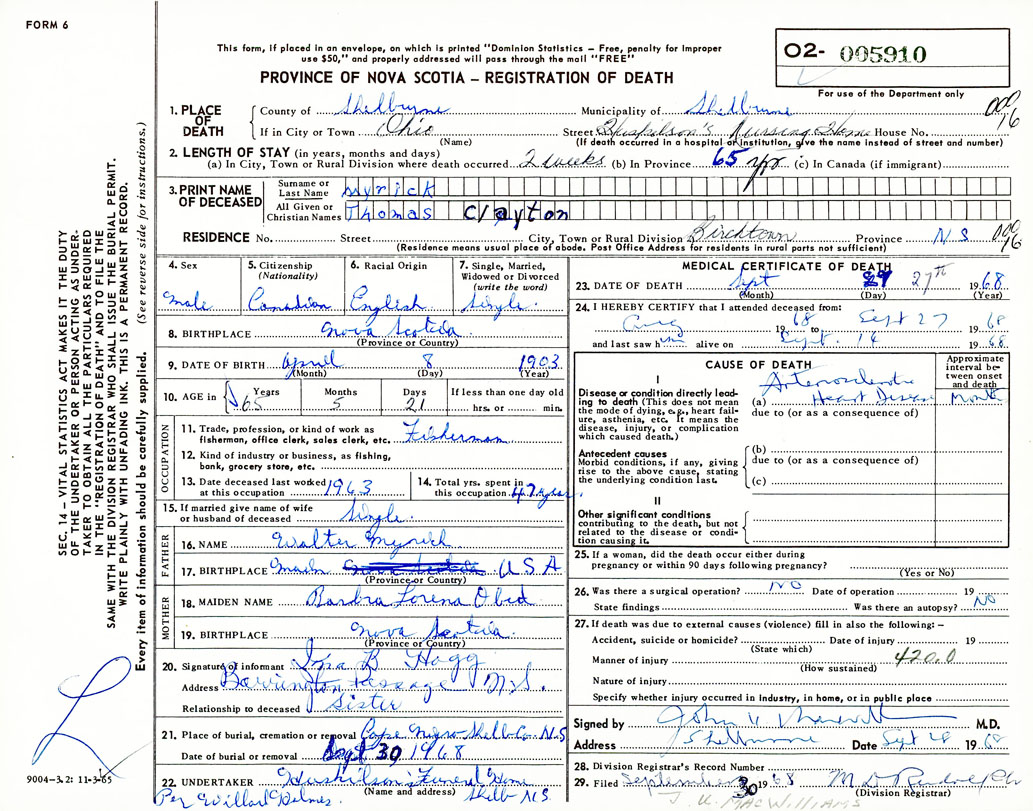 FORM 6
This form, if placed in an envelope, on which is printed "Dominion Statistics – Free, penalty for improper
use $50," and properly addressed will pass through the mail "FREE"
PROVINCE OF NOVA SCOTIA – REGISTRATION OF DEATH
02- 005910
For use of the Department only
SEC. 14 – VITAL STATISTICS ACT MAKES IT THE DUTY
OF THE UNDERTAKER OR PERSON ACTING AS UNDER-
TAKER TO OBTAIN ALL THE PARTICULARS REQUIRED
IN THE "REGISTRATION OF DEATH" AND TO FILE THE
SAME WITH THE DIVISION REGISTRAR WHO SHALL ISSUE THE BURIAL PERMIT.
WRITE PLAINLY WITH UNFADING INK. THIS IS A PERMANENT RECORD.
Every item of information should be carefully supplied. (See reverse side for instructions.)
1. PLACE OF DEATH County of Shelburne Municipality of Shelburne
If in City or Town Ohio Street Huskilson's Nursing Home House No.
(Name) (If death occurred in a hospital or institution, give the name instead of street and number)
2. LENGTH OF STAY (in years, months and days)
(a) In City, Town or Rural Division where death occurred 2 weeks (b) In Province 65 yrs (c) In Canada (if immigrant)
3. PRINT NAME OF DECEASED Surname or Last Name Myrick
All Given or Christian Names Thomas Clayton
RESIDENCE No. Street City, Town or Rural Division Birchtown Province N S
(Residence means usual place of abode. Post Office Address for residents in rural parts not sufficient)
4. Sex Male
5. Citizenship (Nationality) Canadian
6. Racial Origin English
7. Single, Married, Widowed or Divorced (write the word) Single.
8. BIRTHPLACE Nova Scotia
(Province or Country)
9. DATE OF BIRTH April 8 1903
(Month) (Day) (Year)
10. AGE in Years 65 Months 5 Days 21 If less than one day old hrs. or min.
OCCUPATION
11. Trade, profession, or kind of work as fisherman, office clerk, sales clerk, etc. Fisherman
12. Kind of industry or business, as fishing, bank, grocery store, etc.
13. Date deceased last worked at this occupation 1963
14. Total yrs. spent in this occupation 47 years
15. If married give name of wife or husband of deceased Single.
FATHER
16. NAME Walter Myrick
17. BIRTHPLACE Mass U.S.A
(Province or Country)
MOTHER
18. MAIDEN NAME Barbra Lorena Obed
19. BIRTHPLACE Nova Scotia.
(Province or Country)
20. Signature of informant Ina B Hogg
Address Barrington Passage N.S.
Relationship to deceased Sister
21. Place of burial, cremation or removal Cape Negro Shelb Co. N.S
Date of burial or removal Sept 30 1968
22. UNDERTAKER Huskilson's Funeral Home
(Name and address) Shelb N.S.
Per Willard
9004-3.2: 11-3-65
MEDICAL CERTIFICATE OF DEATH
23. DATE OF DEATH Sept 27th 1968
(Month) (Day) (Year)
24. I HEREBY CERTIFY that I attended deceased from:
Aug 1968 to Sept 27 1968
and last saw him alive on Sept. 14 1968
CAUSE OF DEATH
Approximate interval between onset and death
I
Disease or condition directly leading to death (This does not mean the mode of dying, e.g., heart failure, asthenia, etc. It means the disease, injury, or complication which caused death.)
(a) Arteriosclerotic Heart Disease Months
due to (or as a consequence of)
Antecedent causes
Morbid conditions, if any, giving rise to the above cause, stating the underlying condition last.
(b)
due to (or as a consequence of)
(c)
II
Other significant conditions
contributing to the death, but not related to the disease or condition causing it.
25. If a woman, did the death occur either during pregnancy or within 90 days following pregnancy?
(Yes or No)
26. Was there a surgical operation? NO Date of operation 19
State findings Was there an autopsy? NO
27. If death was due to external causes (violence) fill in also the following:–
Accident, suicide or homicide? Date of injury 19
(State which)
Manner of injury 420.0
(How sustained)
Nature of injury
Specify whether injury occurred in industry, in home, or in public place
Signed by John M.D.
Address Shelburne Date Sept 28 1968
28. Division Registrar's Record Number
29. Filed September 30 1968
(Division Registrar)